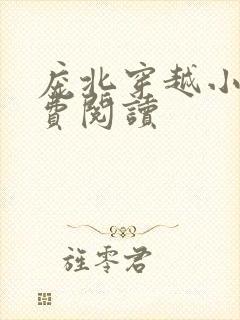 庞北穿越小
費閱讀
旌零君